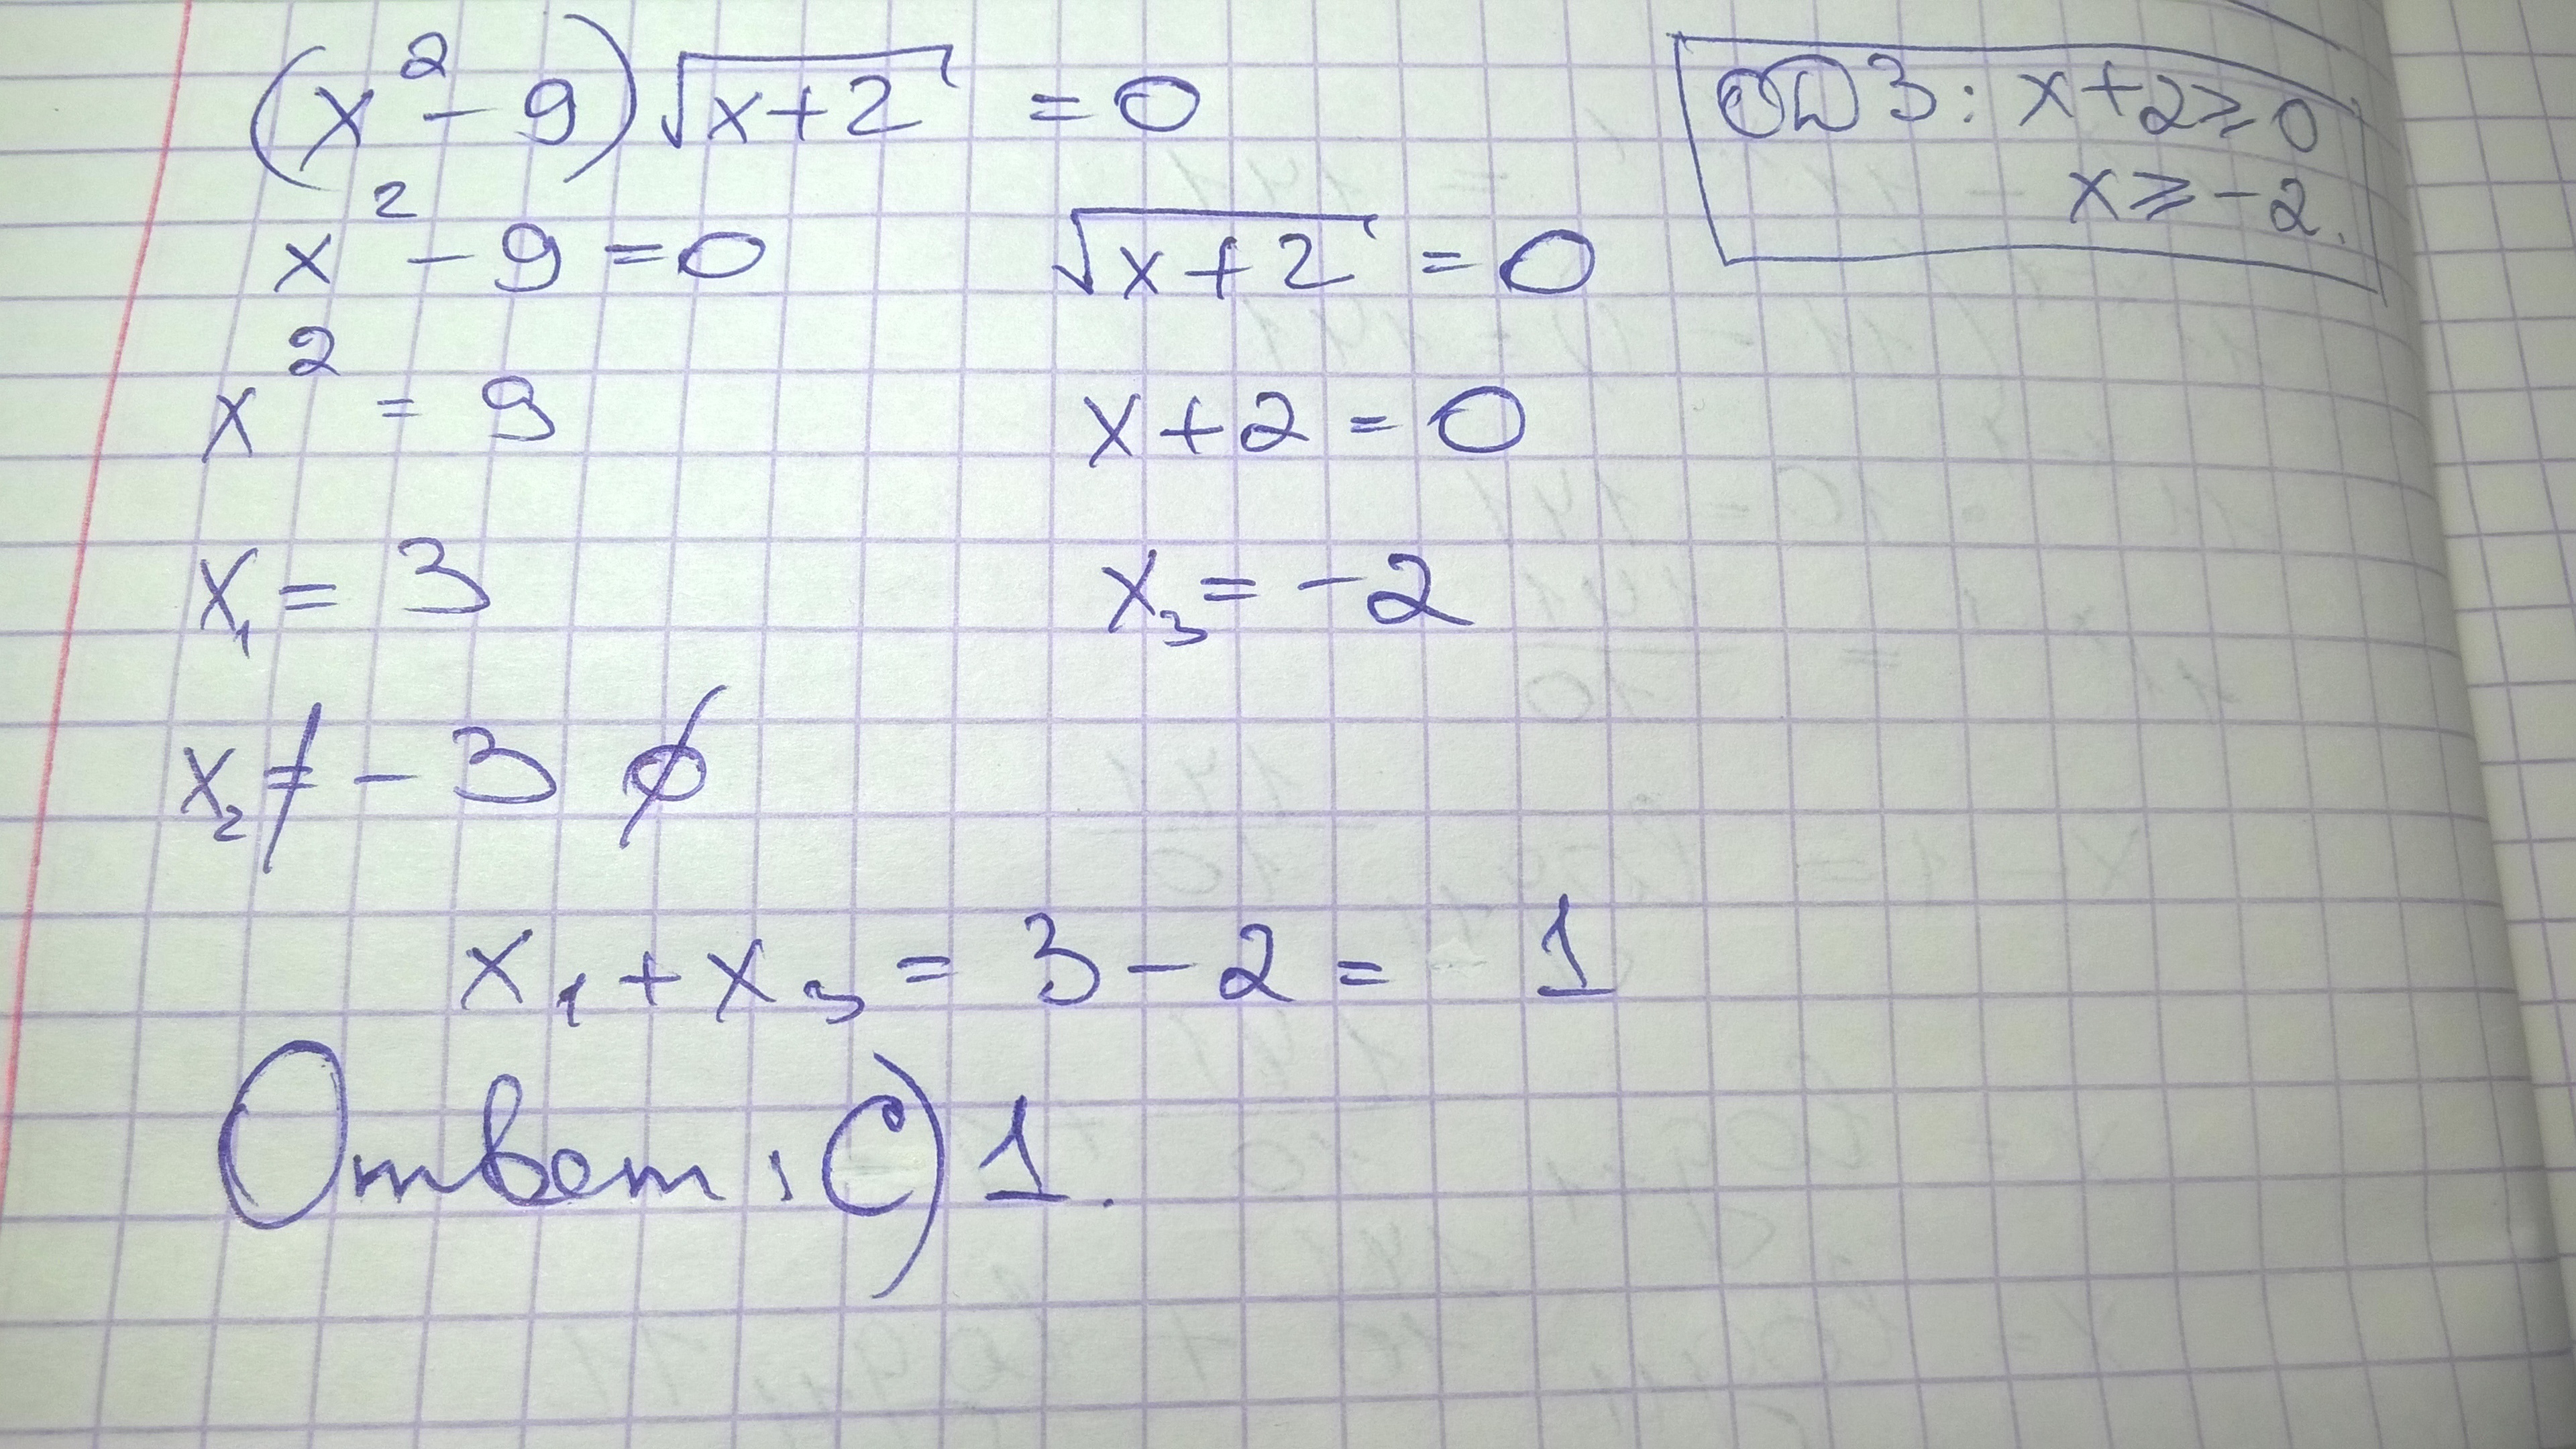 (x² - 9)√(x+2) = 0
ОДЗ: x+2 ≥ 0
x ≥ -2.
x² - 9 = 0
√(x+2) = 0
x² = 9
x+2 = 0
x₁ = 3
x₃ = -2
x₂ ≠ -3 ∅
x₁ + x₃ = 3 - 2 = 1
Ответ: C) 1.